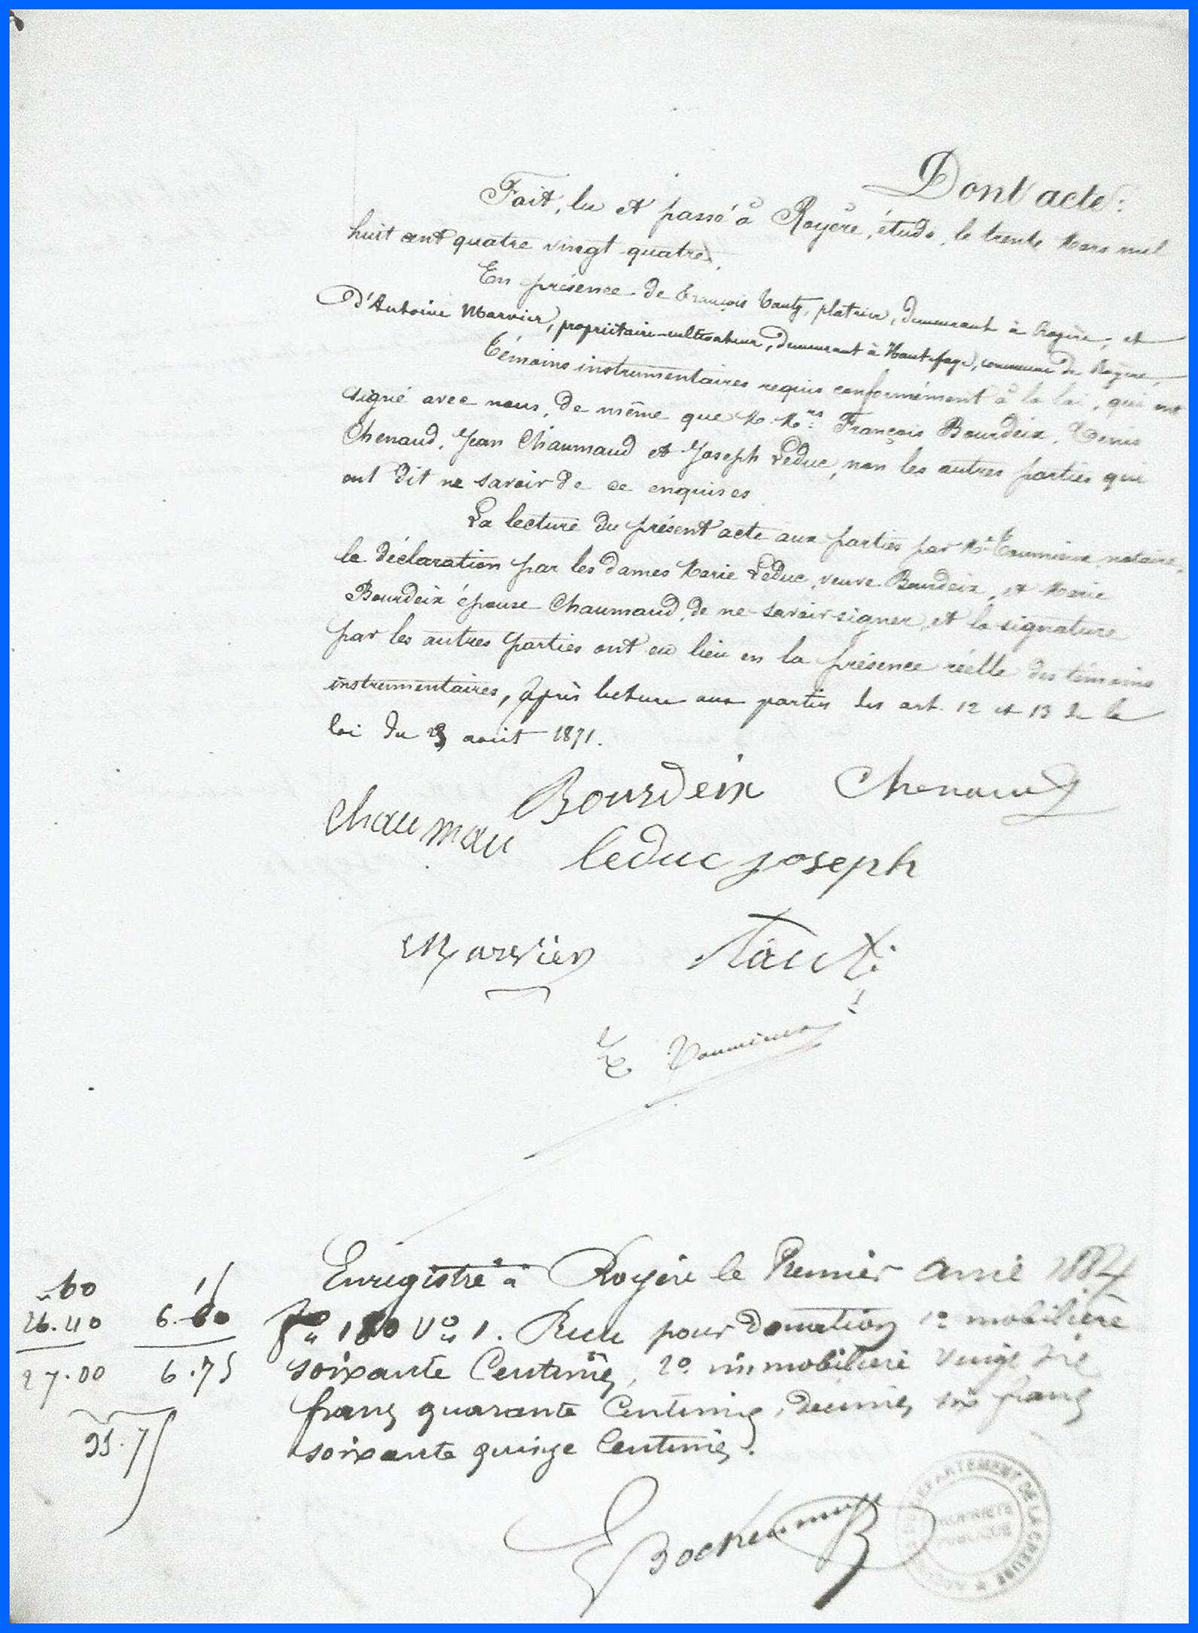 Dont acte :
Fait, lu et passé à Royère, étude, le trente Mars mil
huit cent quatre vingt quatre.
En présence de François Tauty, platrier, demeurant à Royère, et
d'Antoine Marvier, propriétaire-cultivateur, demeurant à Hautefage, commune de Royère,
Témoins instrumentaires requis conformément à la loi, qui ont
signé avec nous, de même que M. Mrs. François Bourdeix, Denis
Chenaud, Jean Chaumaud et Joseph Leduc, non les autres parties qui
ont dit ne savoir de ce enquises.
La lecture du présent acte aux parties par Me notaire,
la déclaration par les dames Marie Leduc, veuve Bourdeix, et Marie
Bourdeix épouse Chaumaud, de ne savoir signer, et la signature
par les autres parties ont eu lieu en la présence réelle des témoins
instrumentaires, après lecture aux parties des art. 12 et 13 de la
loi du 23 août 1871.
Bourdeix Chenaud
Chaumau
leduc joseph
Marvier Tauti
Enregistré à Royère le Premier avril 1884
fo 180 Vo 1. Reçu pour donation 1º mobilière
soixante Centimes, 2º immobilière vingt six
francs quarante Centimes, décimes six francs
soixante quinze Centimes.
.60
26.40 6.60
27.00 6.75
DEPARTEMENT DE LA CREUSE
PROPRIETE
PUBLIQUE